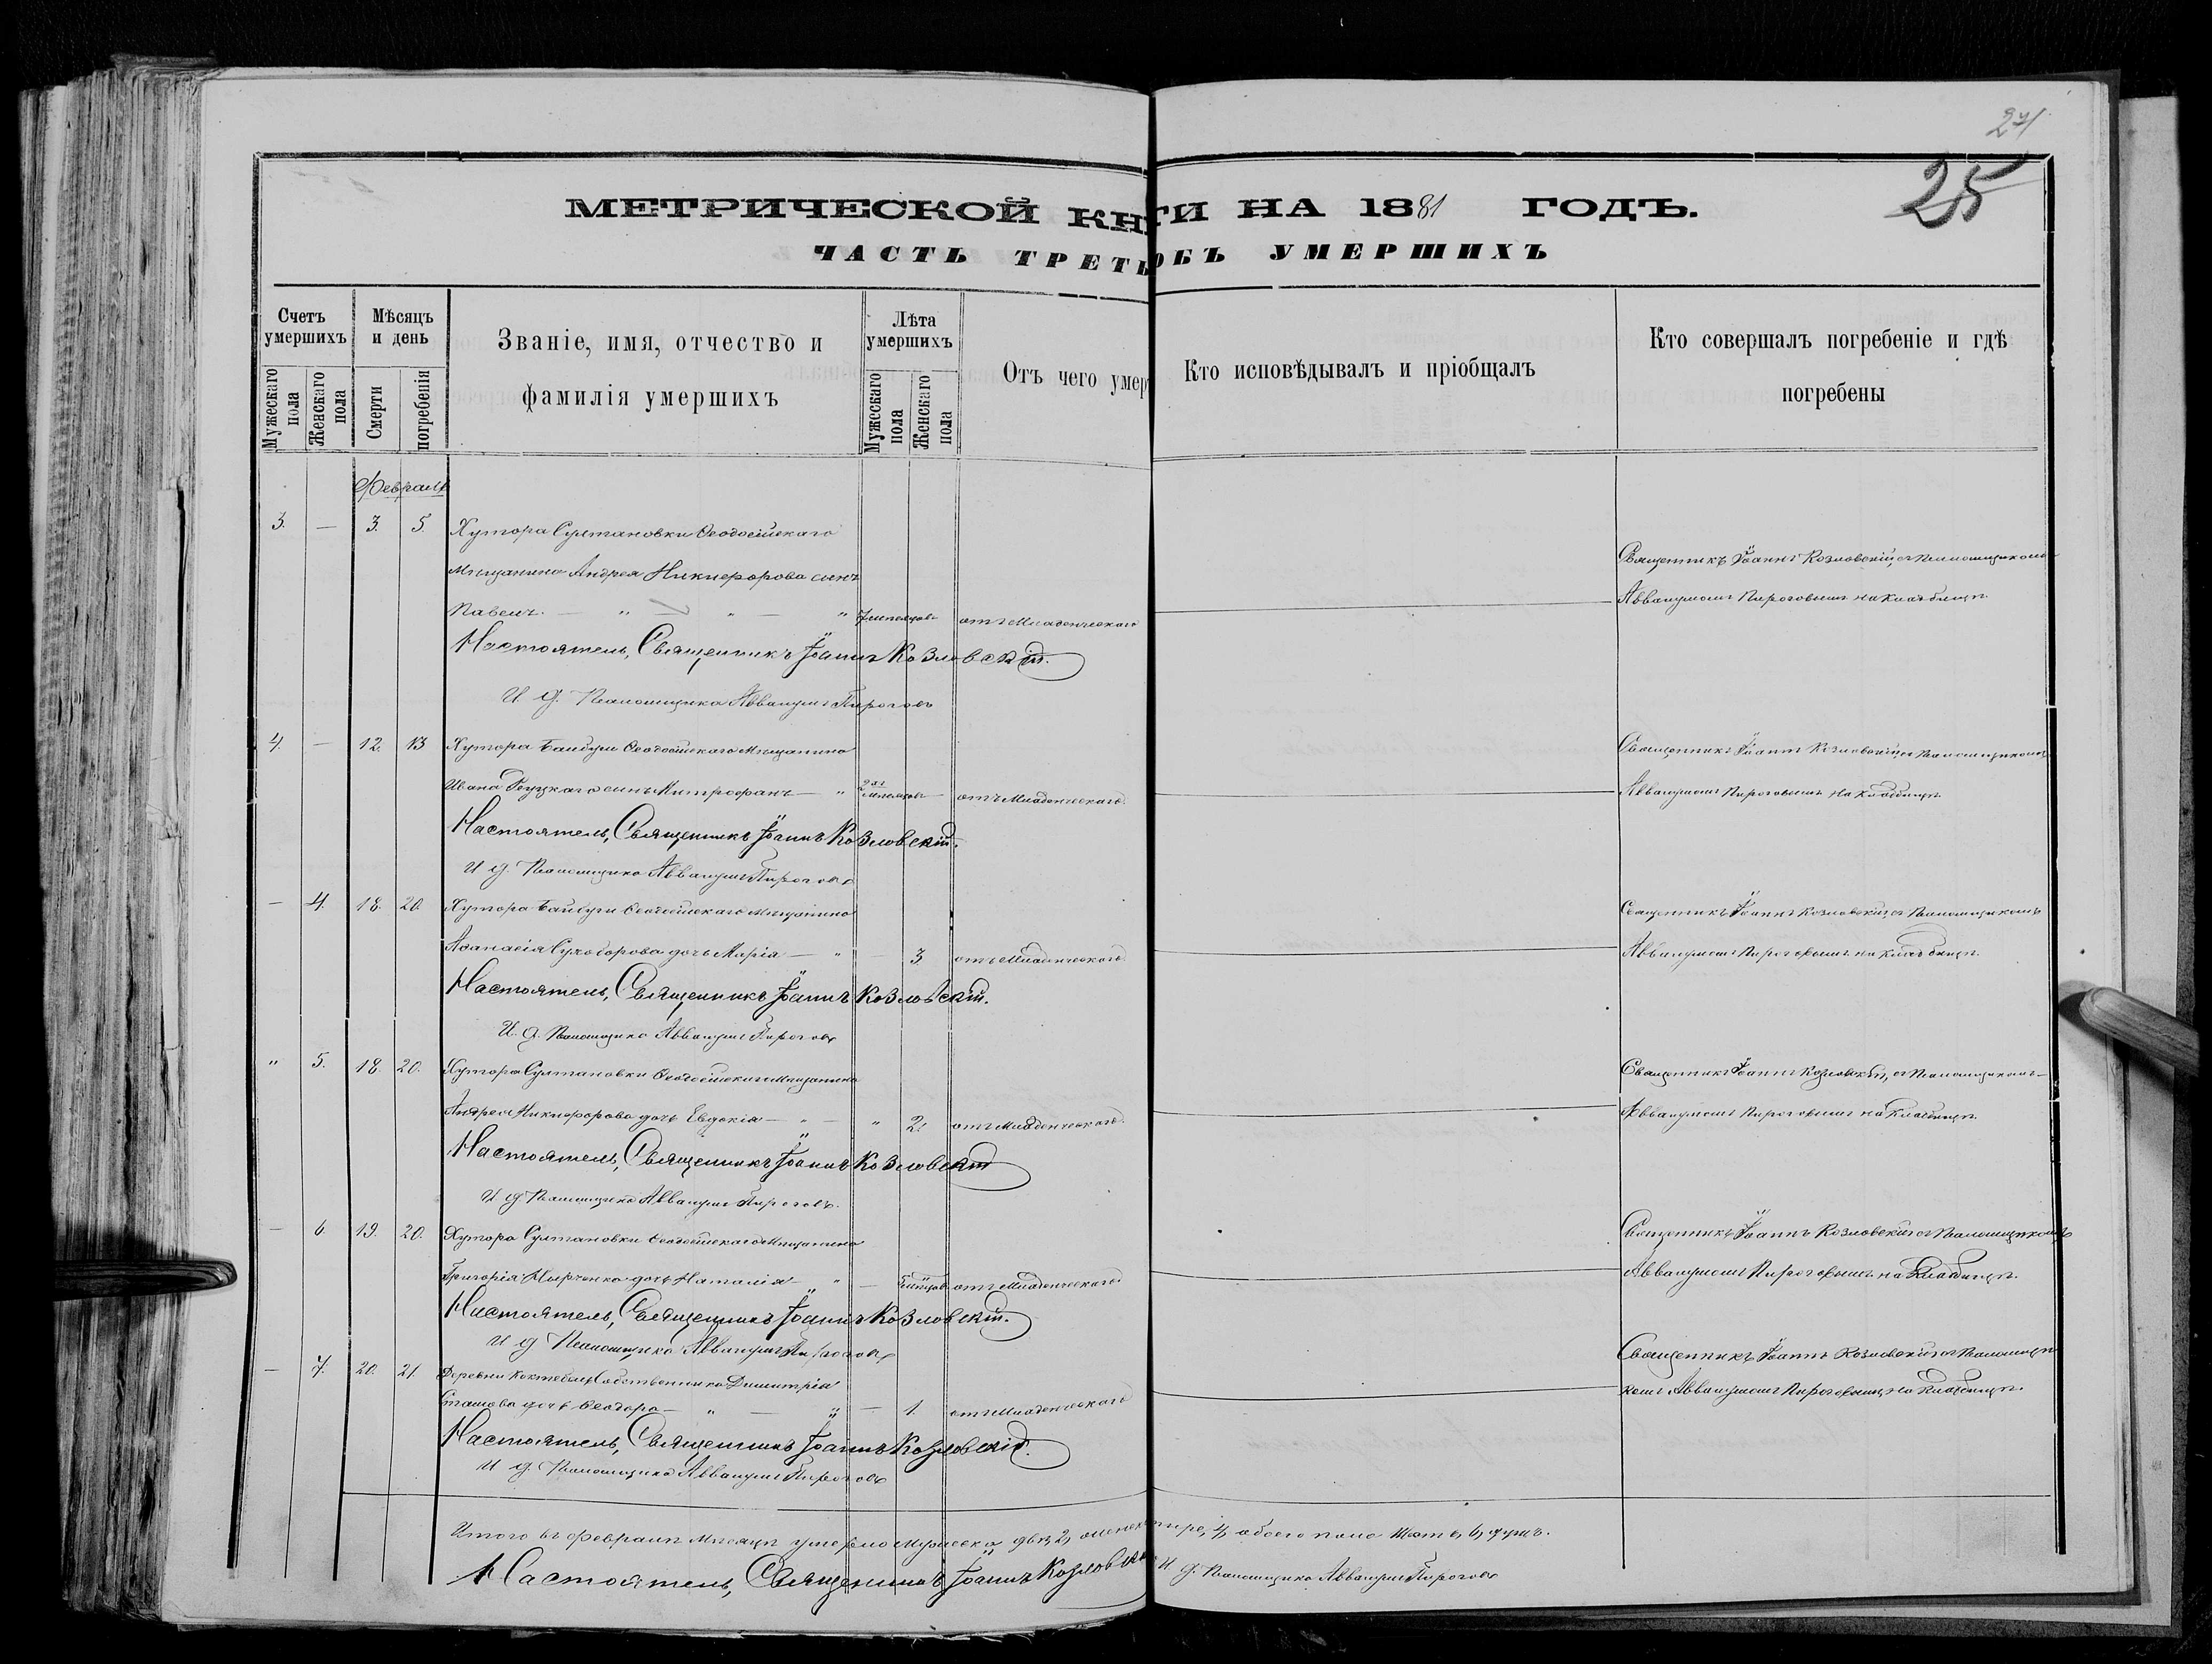 24
25
МЕТРИЧЕСКОЙ КНИГИ НА 1881 ГОДЪ.
ЧАСТЬ ТРЕТЬ ОБЪ УМЕРШИХЪ
Счетъ умершихъ
Мужескаго пола
Женскаго пола
Мѣсяцъ и день
Смерти
погребенія
Званіе, имя, отчество и
фамилія умершихъ
Лѣта умершихъ
Мужескаго пола
Женскаго пола
Отъ чего умер
Кто исповѣдывалъ и пріобщалъ
Кто совершалъ погребеніе и гдѣ
погребены
Февраль
3. — 3. 5. Хутора Султановки Ѳеодосійскаго
Мѣщанина Андрея Никифорова сынъ
Павелъ. — " — " — " 7 мѣсяцовъ отъ Младенческаго
Священникъ Іоаннъ Козловскій, съ Псаломщикомъ
Аввакумомъ Пироговымъ на кладбищѣ.
Настоятель, Священникъ Іоаннъ Козловскій.
И. д. Псаломщика Аввакумъ Пироговъ
4. — 12. 13 Хутора Байбуги Ѳеодосійскаго Мѣщанина
Ивана сынъ Митрофанъ — " отъ Младенческаго.
Священникъ Іоаннъ Козловскій съ Псаломщикомъ
Аввакумомъ Пироговымъ на кладбищѣ.
Настоятель, Священникъ Іоаннъ Козловскій.
И д. Псаломщика Аввакумъ Пироговъ
— 4. 18. 20. Хутора Байбуги Ѳеодосійскаго Мѣщанина
Аѳанасія Сухоборова дочь Марія — " — 3 отъ Младенческаго.
Священникъ Іоаннъ Козловскій, съ Псаломщикомъ
Аввакумомъ Пироговымъ на кладбищѣ.
Настоятель, Священникъ Іоаннъ Козловскій.
И. д. Псаломщика Аввакумъ Пироговъ
" 5. 18. 20. Хутора Султановки Ѳеодосійскаго Мѣщанина
Андрея Никифорова дочь Евдокія — " — " 2. отъ Младенческаго.
Священникъ Іоаннъ Козловскій, съ Псаломщикомъ
Аввакумомъ Пироговымъ на кладбищѣ.
Настоятель, Священникъ Іоаннъ Козловскій
И д. Псаломщика Аввакумъ Пироговъ.
— 6. 19. 20. Хутора Султановки Ѳеодосійскаго Мѣщанина
Григорія дочь Наталія — " — отъ Младенческаго
Священникъ Іоаннъ Козловскій съ Псаломщикомъ
Аввакумомъ Пироговымъ на кладбищѣ.
Настоятель, Священникъ Іоаннъ Козловскій.
И д Псаломщика Аввакумъ Пироговъ
— 7. 20. 21. Деревни Коктебель Собственника Димитрія
дочь Ѳеодора — " — " — 1. отъ Младенческаго
Священникъ Іоаннъ Козловскій съ Псаломщи-
комъ Аввакумомъ Пироговымъ, на кладбищѣ.
Настоятель, Священникъ Іоаннъ Козловскій.
И д. Псаломщика Аввакумъ Пироговъ
Итого въ Февралѣ Мѣсяцѣ умерло Мужеска два, 2, тыре, 4, обоего пола Шесть, 6, душъ.
Настоятель, Священникъ Іоаннъ Козловскій И д. Псаломщика Аввакумъ Пироговъ